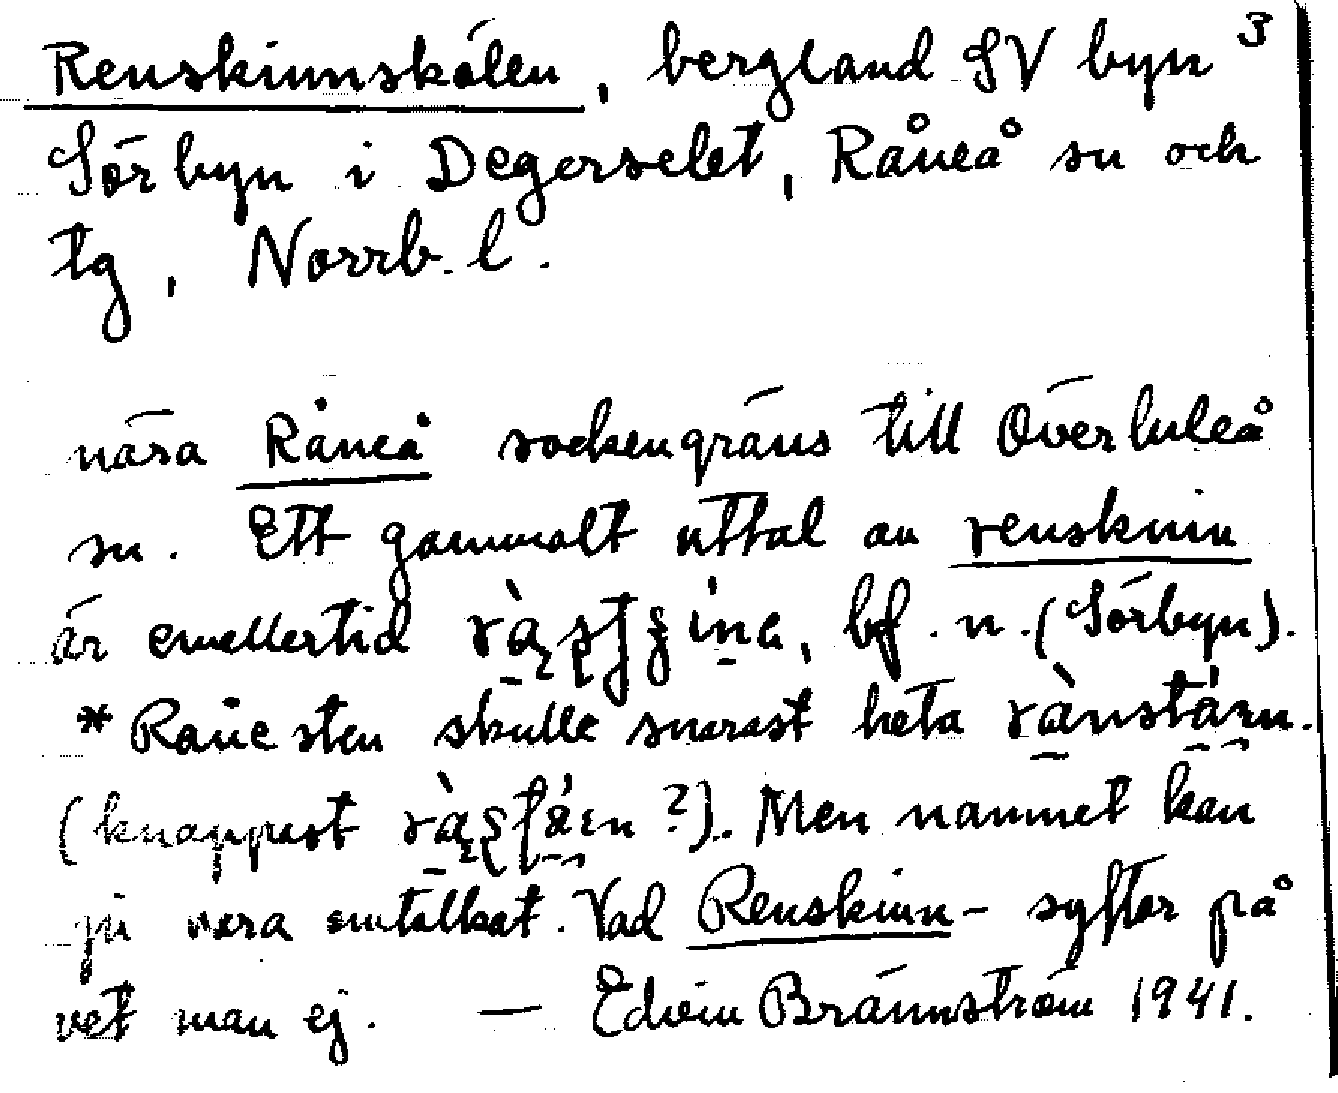 Renskinnskölen, bergland SV byn 3
Sörbyn i Degerselet, Råneå sn och
tg, Norrb. l.
nära Råneå sockengräns till Överluleå
sn. Ett gammalt uttal av renskinn
är emellertid bf. n. (Sörbyn).
*Råne sten skulle snarast heta rànstáɛn.
(knappast ?). Men namnet kan
ju vara omtolkat. Vad Renskinn- syftar på
vet man ej. — Edvin Brännström 1941.